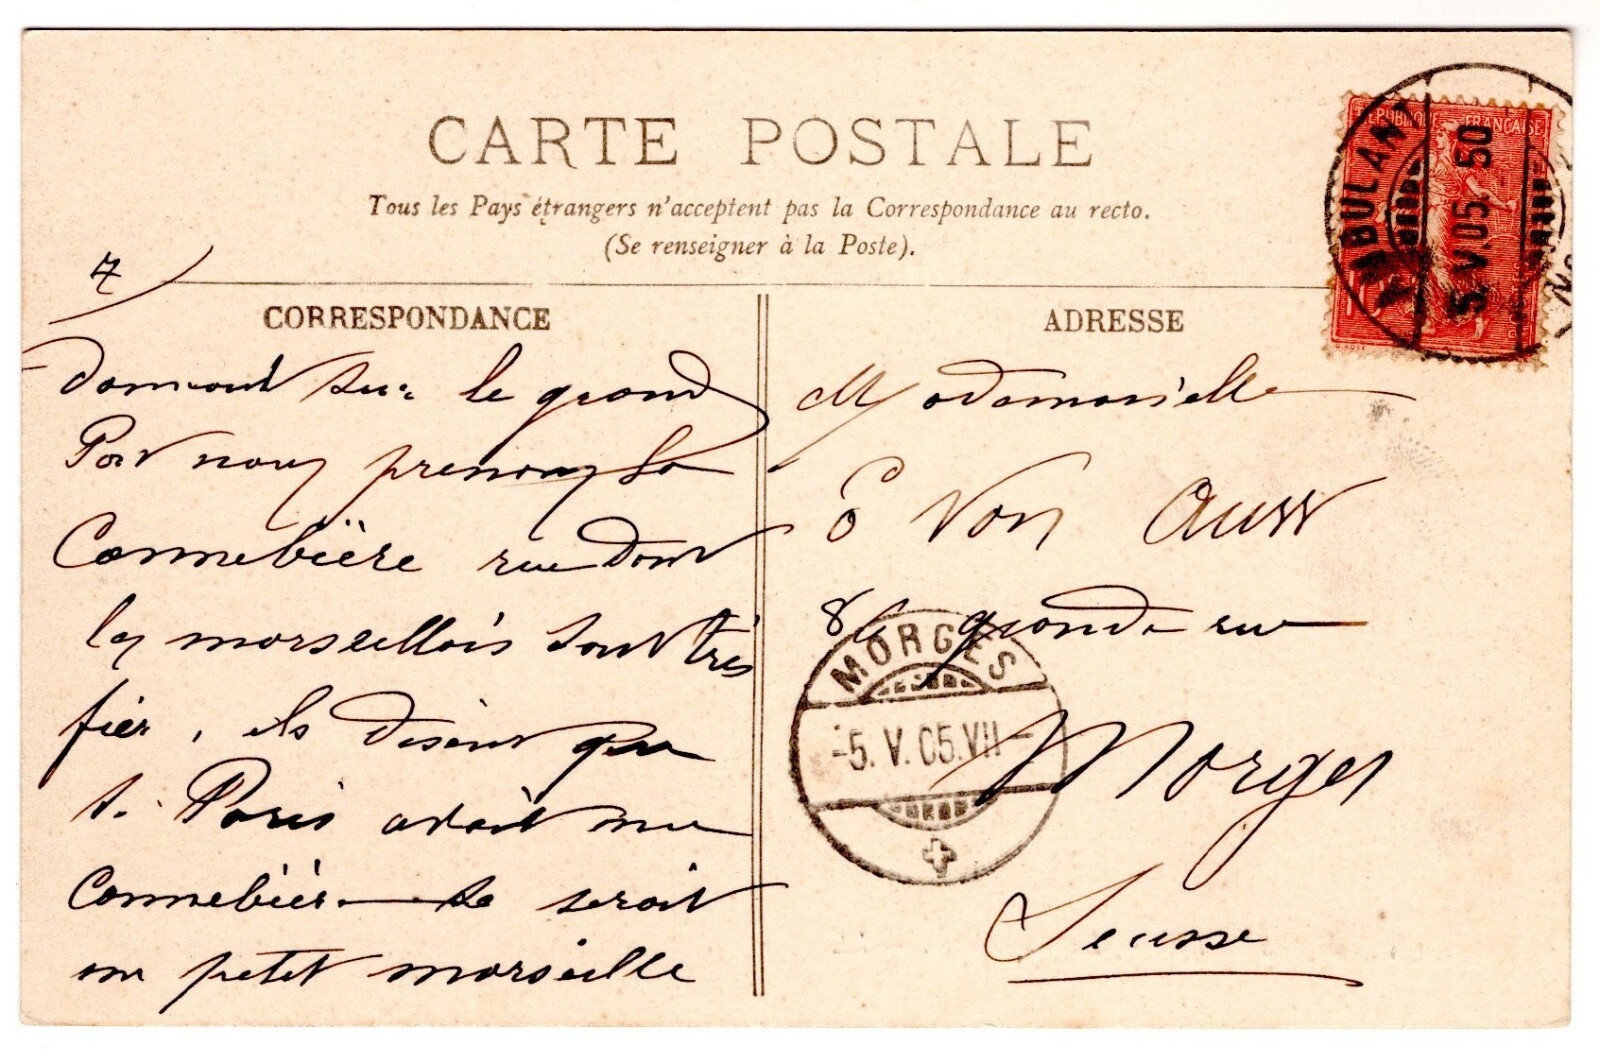 CARTE POSTALE
Tous les Pays étrangers n'acceptent pas la Correspondance au recto.
(Se renseigner à la Poste).
7
CORRESPONDANCE
donnant sur le grand
Port nous prenons la
Cannebière rue dont
les marseillais sont très
fier, ils disent que
si Paris avait une
Cannebière se serait
un petit marseille
ADRESSE
Mademoiselle
E Von Auw
86 grande rue
Morges
Suisse
REPUBLIQUE FRANÇAISE
AMBULANT
5.V.05.-50
MORGES
-5.V.05.VII-